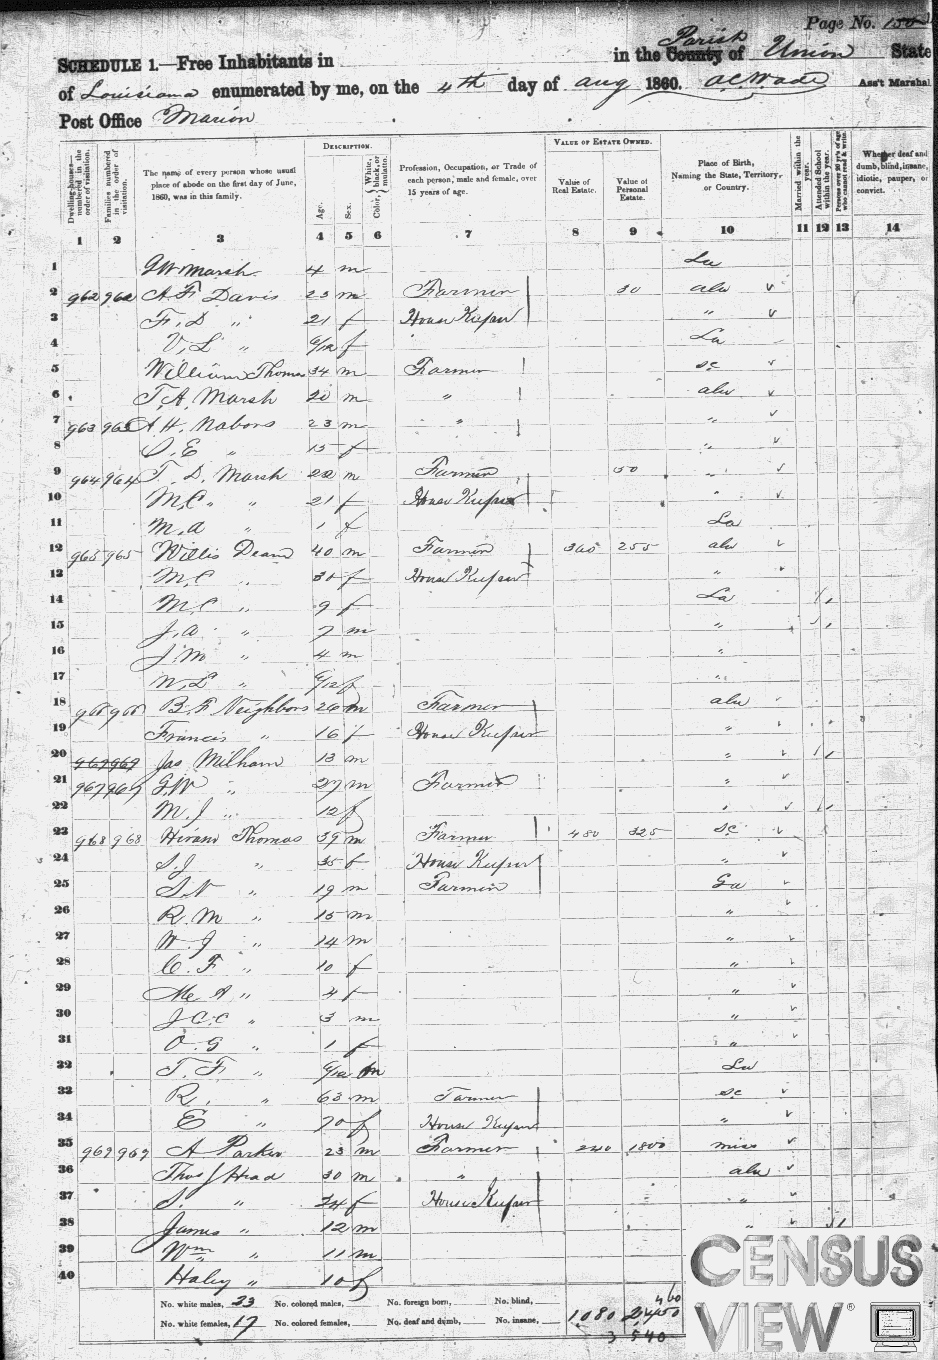 Page No. 150
SCHEDULE 1.—Free Inhabitants in in the County Parish of Union State
of Louisiana enumerated by me, on the 4th day of aug 1860. Ass't Marshal
Post Office Marion
Dwelling-houses—numbered in the order of visitation.
Families numbered in the order of visitation.
The name of every person whose usual place of abode on the first day of June, 1860, was in this family.
DESCRIPTION.
Age.
Sex.
Color, White, black, or mulatto.
Profession, Occupation, or Trade of each person, male and female, over 15 years of age.
VALUE OF ESTATE OWNED.
Value of Real Estate.
Value of Personal Estate.
Place of Birth, Naming the State, Territory, or Country.
Married within the year.
Attended School within the year.
Persons over 20 y'rs of age who cannot read & write.
Whether deaf and dumb, blind, insane, idiotic, pauper, or convict.
1 2 3 4 5 6 7 8 9 10 11 12 13 14
1 GW Marsh 4 m La
2 962 962 A F Davis 23 m Farmer 30 ala
3 F, D " 21 f House Keeper "
4 V, L " 6/12 f La
5 William Thomas 34 m Farmer sc
6 T. A. Marsh 20 m " ala
7 963 963 A H. Nabors 23 m " "
8 S. E " 15 f "
9 964 964 T. D. Marsh 22 m Farmer 50 "
10 M, C " " 21 f House Keeper "
11 M, a " 1 f La
12 965 965 Willis Dean 40 m Farmer 360 255 ala
13 M, C " 30 f House Keeper "
14 M, C " 9 f La
15 J, a " 7 m "
16 J. M " 4 m "
17 " 6/12 f "
18 966 966 B. F Neighbors 26 m Farmer ala
19 Francis " 16 f House Keeper "
20 967 967 Jas Milham 13 m "
21 967 967 G. W " 27 m Farmer "
22 M. J " 12 f "
23 968 968 Hiram Thomas 39 m Farmer 480 325 sc
24 S. J " 35 f House Keeper "
25 S. N " 19 m Farmer Ga
26 R. M " 15 m "
27 W. J " 14 m "
28 C. F " 10 f "
29 Mc A " 4 f "
30 J C. C " 3 m "
31 O. G " 1 f "
32 T. F " 6/12 m La
33 R, " 63 m Farmer sc
34 E " 70 f House Keeper "
35 969 969 A Parker 23 m Farmer 240 1800 miss
36 Thos J Head 30 m " ala
37 S. " 34 f House Keeper "
38 James " 12 m "
39 Wm " 11 m
40 Haley " 10 f
No. white males, 23 No. colored males, No. foreign born, No. blind,
No. white females, 17 No. colored females, No. deaf and dumb, No. insane, 1,080 2,460
3 540
CENSUS
VIEW®